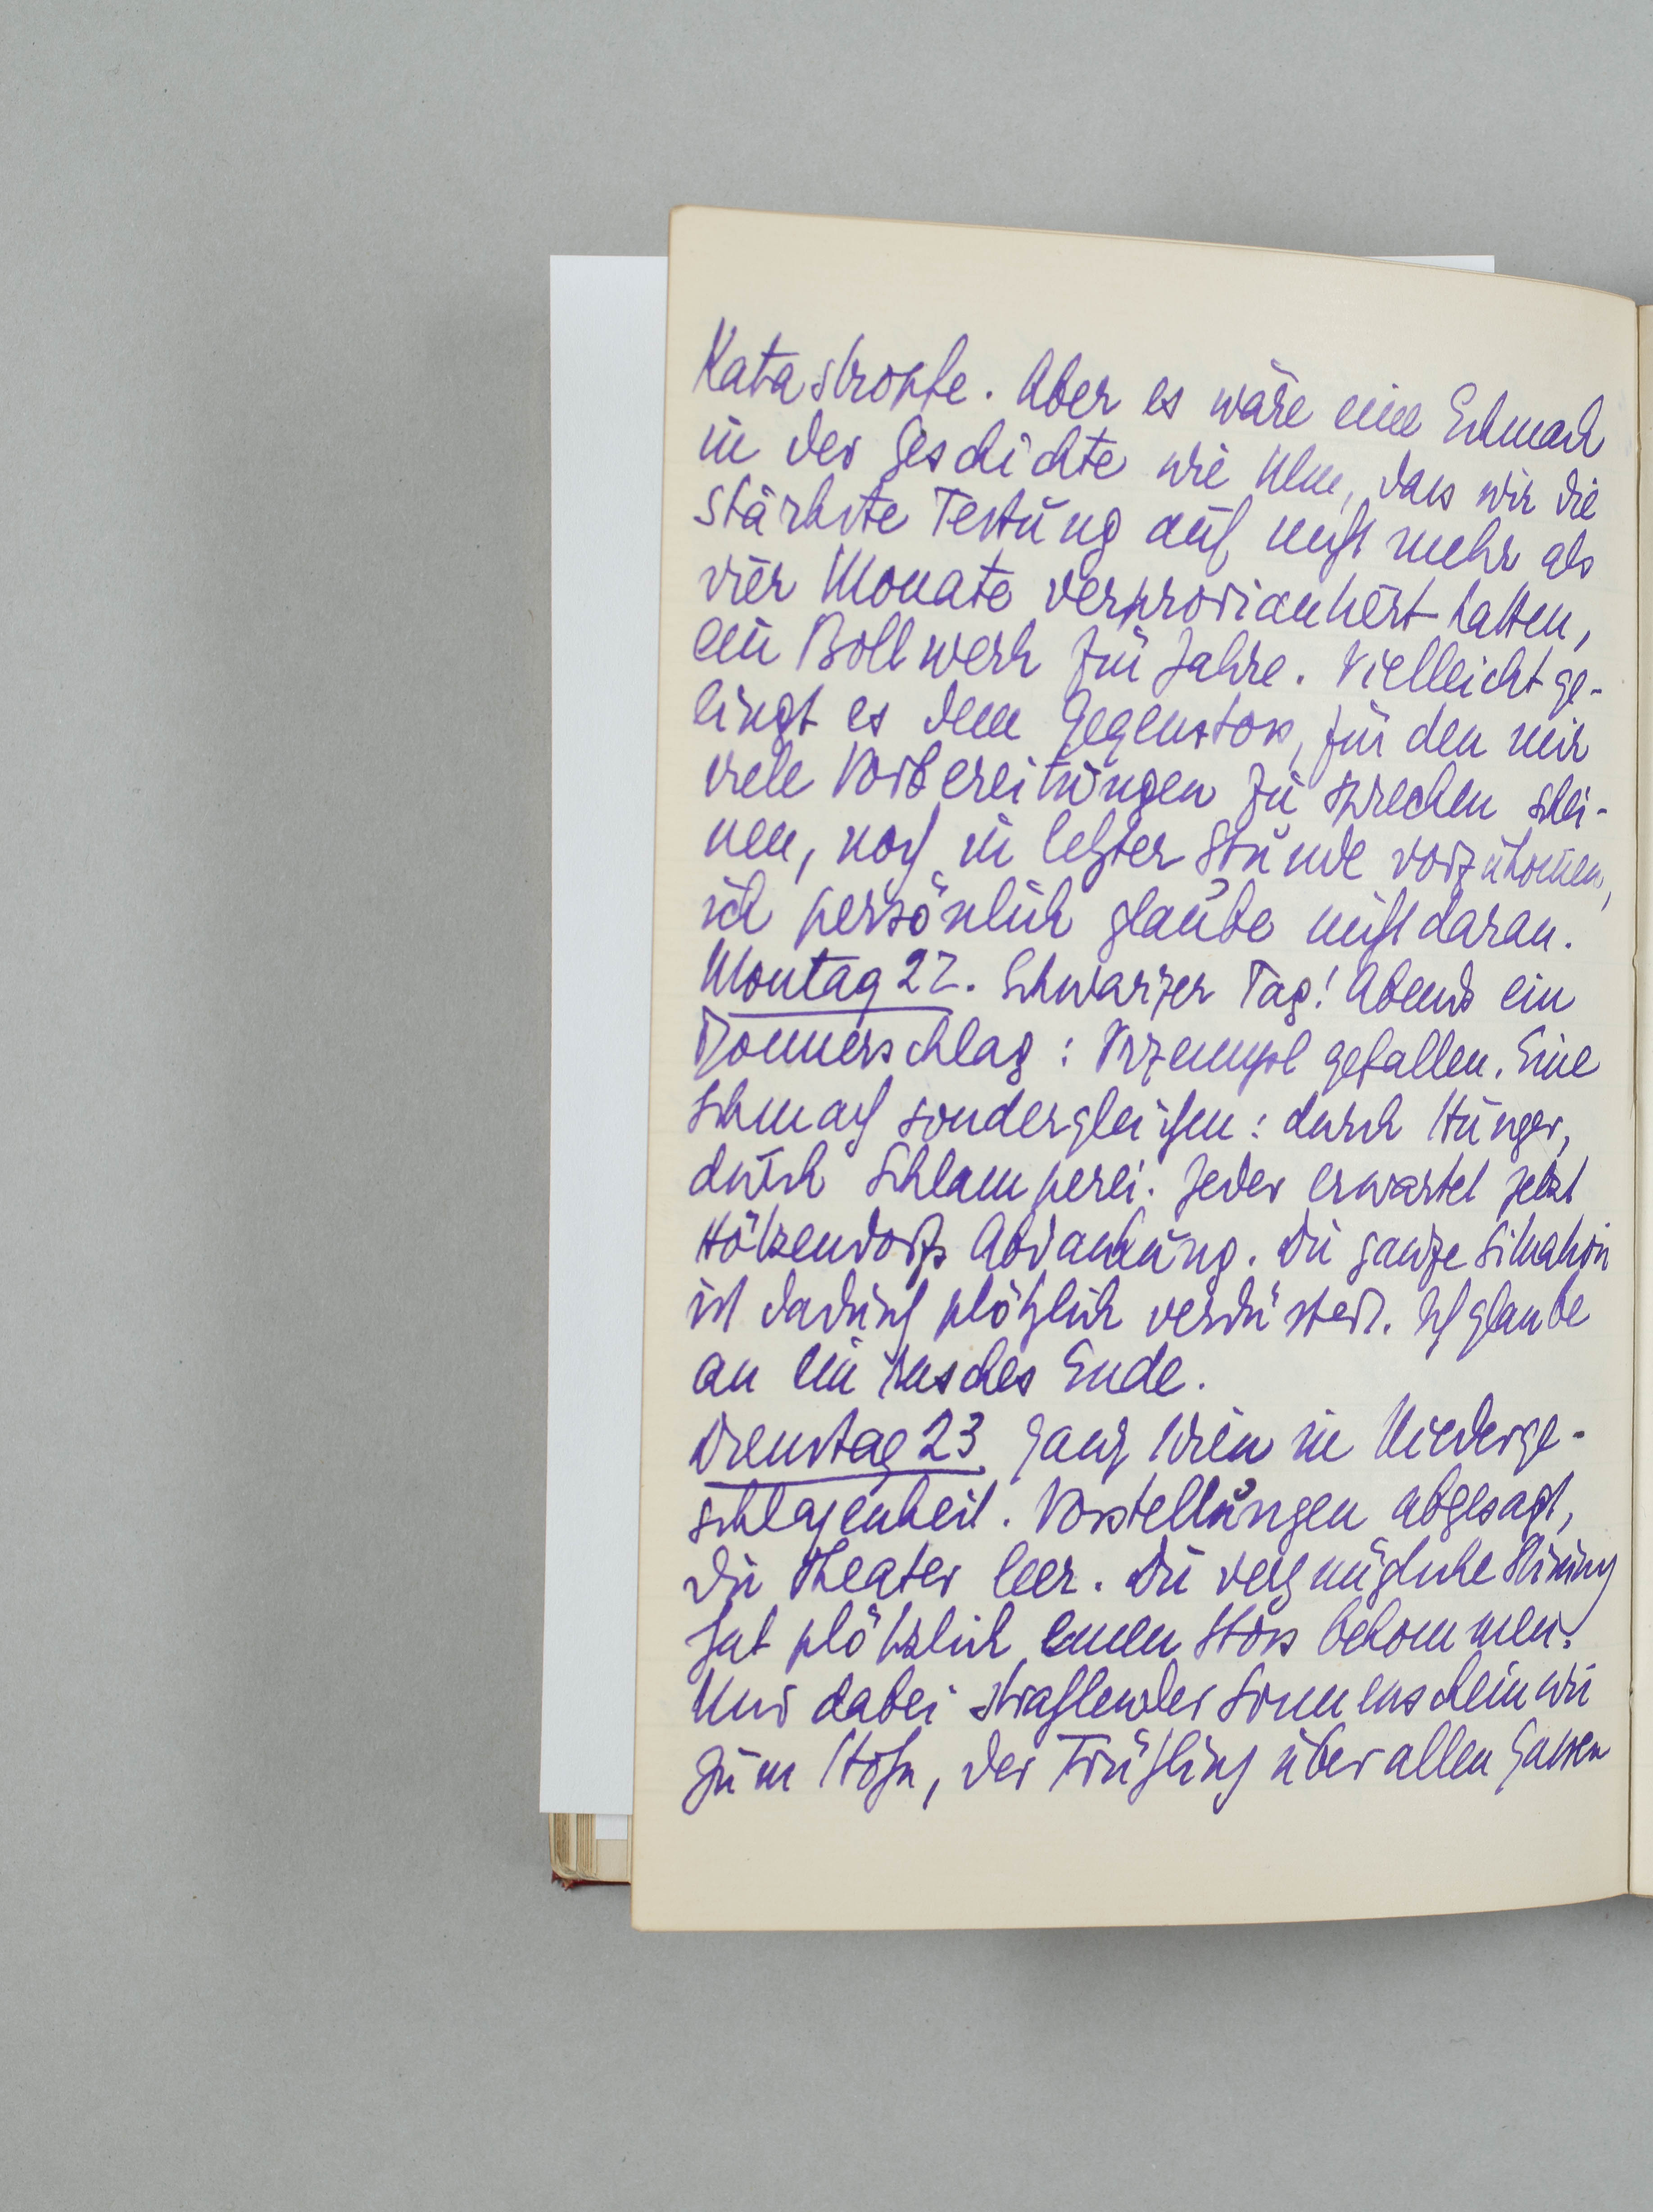 Katastrophe. Aber es wäre eine Schmach
in der Geschichte wie Ulm, dass wir die
stärkste Festung auf nicht mehr als
vier Monate verproviantiert hatten,
ein Bollwerk für Jahre. Vielleicht ge-
lingt es dem Gegenstoss, für den mir
viele Vorbereitungen zu sprechen schei-
nen, noch in letzter Stunde vorzukommen,
ich persönlich glaube nicht daran.
Montag 22. Schwarzer Tag! Abends ein
Donnerschlag: Przemysl gefallen. Eine
Schmach sondergleichen: durch Hunger,
durch Schlamperei. Jeder erwartet jetzt
Hötzendorfs Abdankung. Die ganze Situation
ist dadurch plötzlich verdüstert. Ich glaube
an ein rasches Ende.
Dienstag 23. Ganz Wien in Niederge-
schlagenheit. Vorstellungen abgesagt,
die Theater leer. Die vergnügliche Stimung
hat plötzlich einen Stoss bekommen.
Und dabei strahlender Sonnenschein wie
zum Hohn, der Frühling über allen Gassen